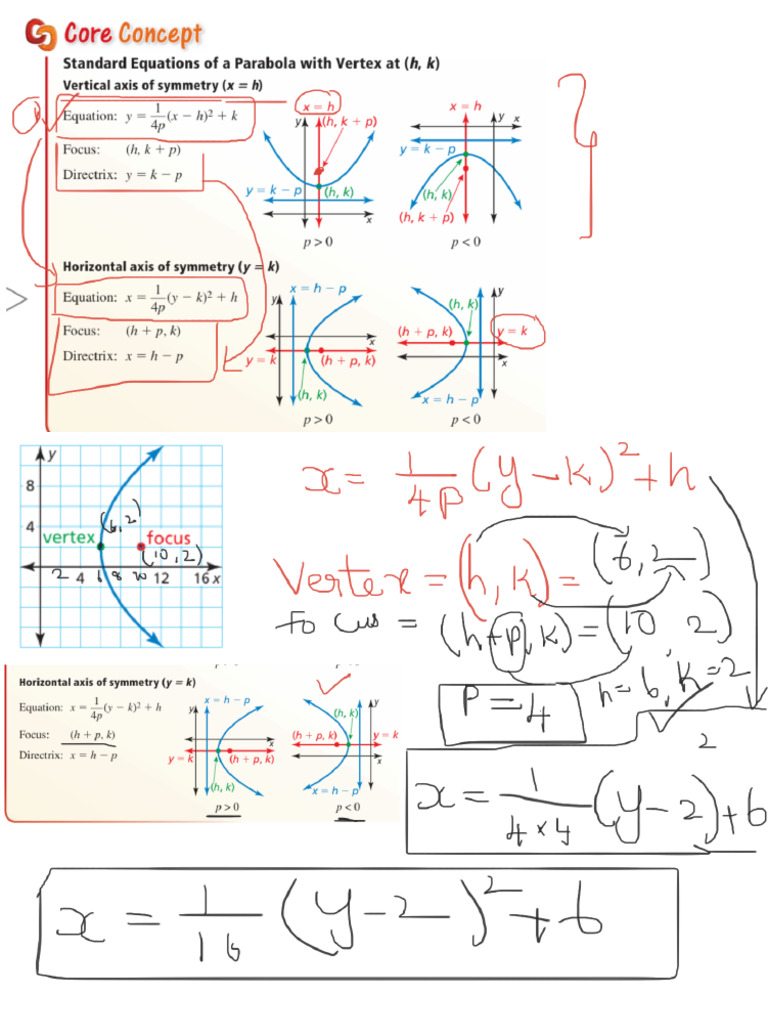 Core Concept
Standard Equations of a Parabola with Vertex at (h, k)
Vertical axis of symmetry (x = h)
Equation: y = 1/4p (x − h)² + k
Focus: (h, k + p)
Directrix: y = k − p
x = h
y
(h, k + p)
y = k − p
(h, k)
x
p > 0
x = h
y
x
y = k − p
(h, k)
(h, k + p)
p < 0
Horizontal axis of symmetry (y = k)
Equation: x = 1/4p (y − k)² + h
Focus: (h + p, k)
Directrix: x = h − p
x = h − p
y
x
y = k
(h + p, k)
(h, k)
p > 0
y
(h, k)
(h + p, k)
y = k
x
x = h − p
p < 0
y
8
4
(6, 2)
vertex
focus
(10, 2)
2 4 6 8 10 12 16 x
x = 1/4p (y − k)² + h
Vertex = (h, k) = (6, 2)
Focus = (h+p, k) = (10, 2)
P = 4
h = 6, k = 2
x = 1/4×4 (y − 2)² + 6
Horizontal axis of symmetry (y = k)
Equation: x = 1/4p (y − k)² + h
Focus: (h + p, k)
Directrix: x = h − p
x = h − p
y
x
y = k
(h + p, k)
(h, k)
p > 0
y
(h, k)
(h + p, k)
y = k
x
x = h − p
p < 0
x = 1/16 (y − 2)² + 6